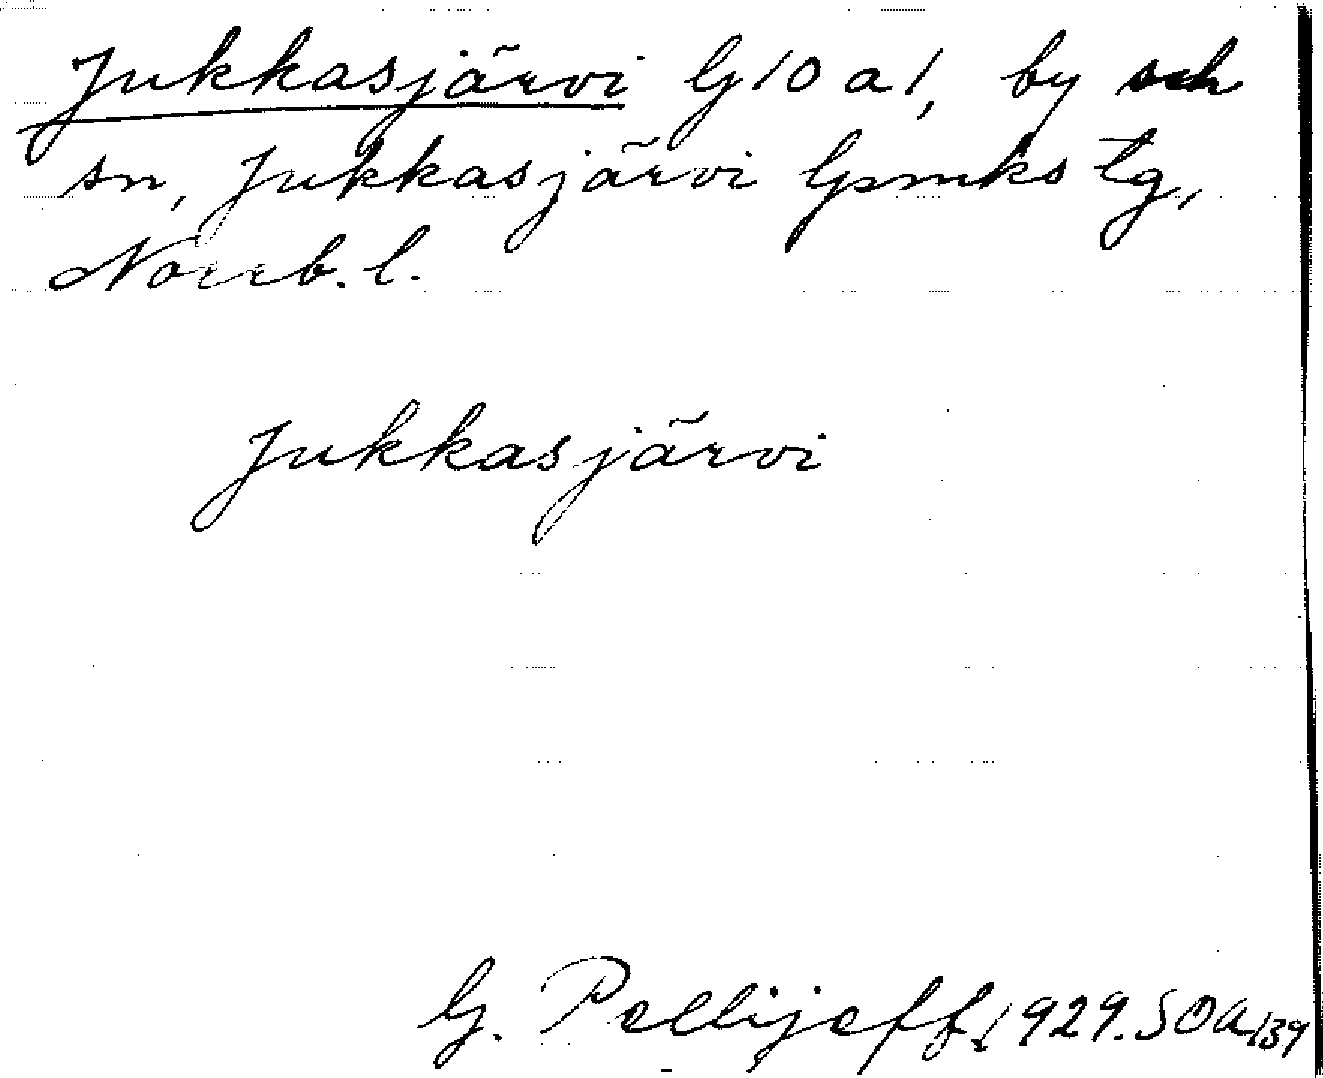 Jukkasjärvi G 10 a 1, by och
sn, Jukkasjärvi lpmks tg,
Norrb. l.
Jukkasjärvi
G. Pellijeff 1929. SOA 139